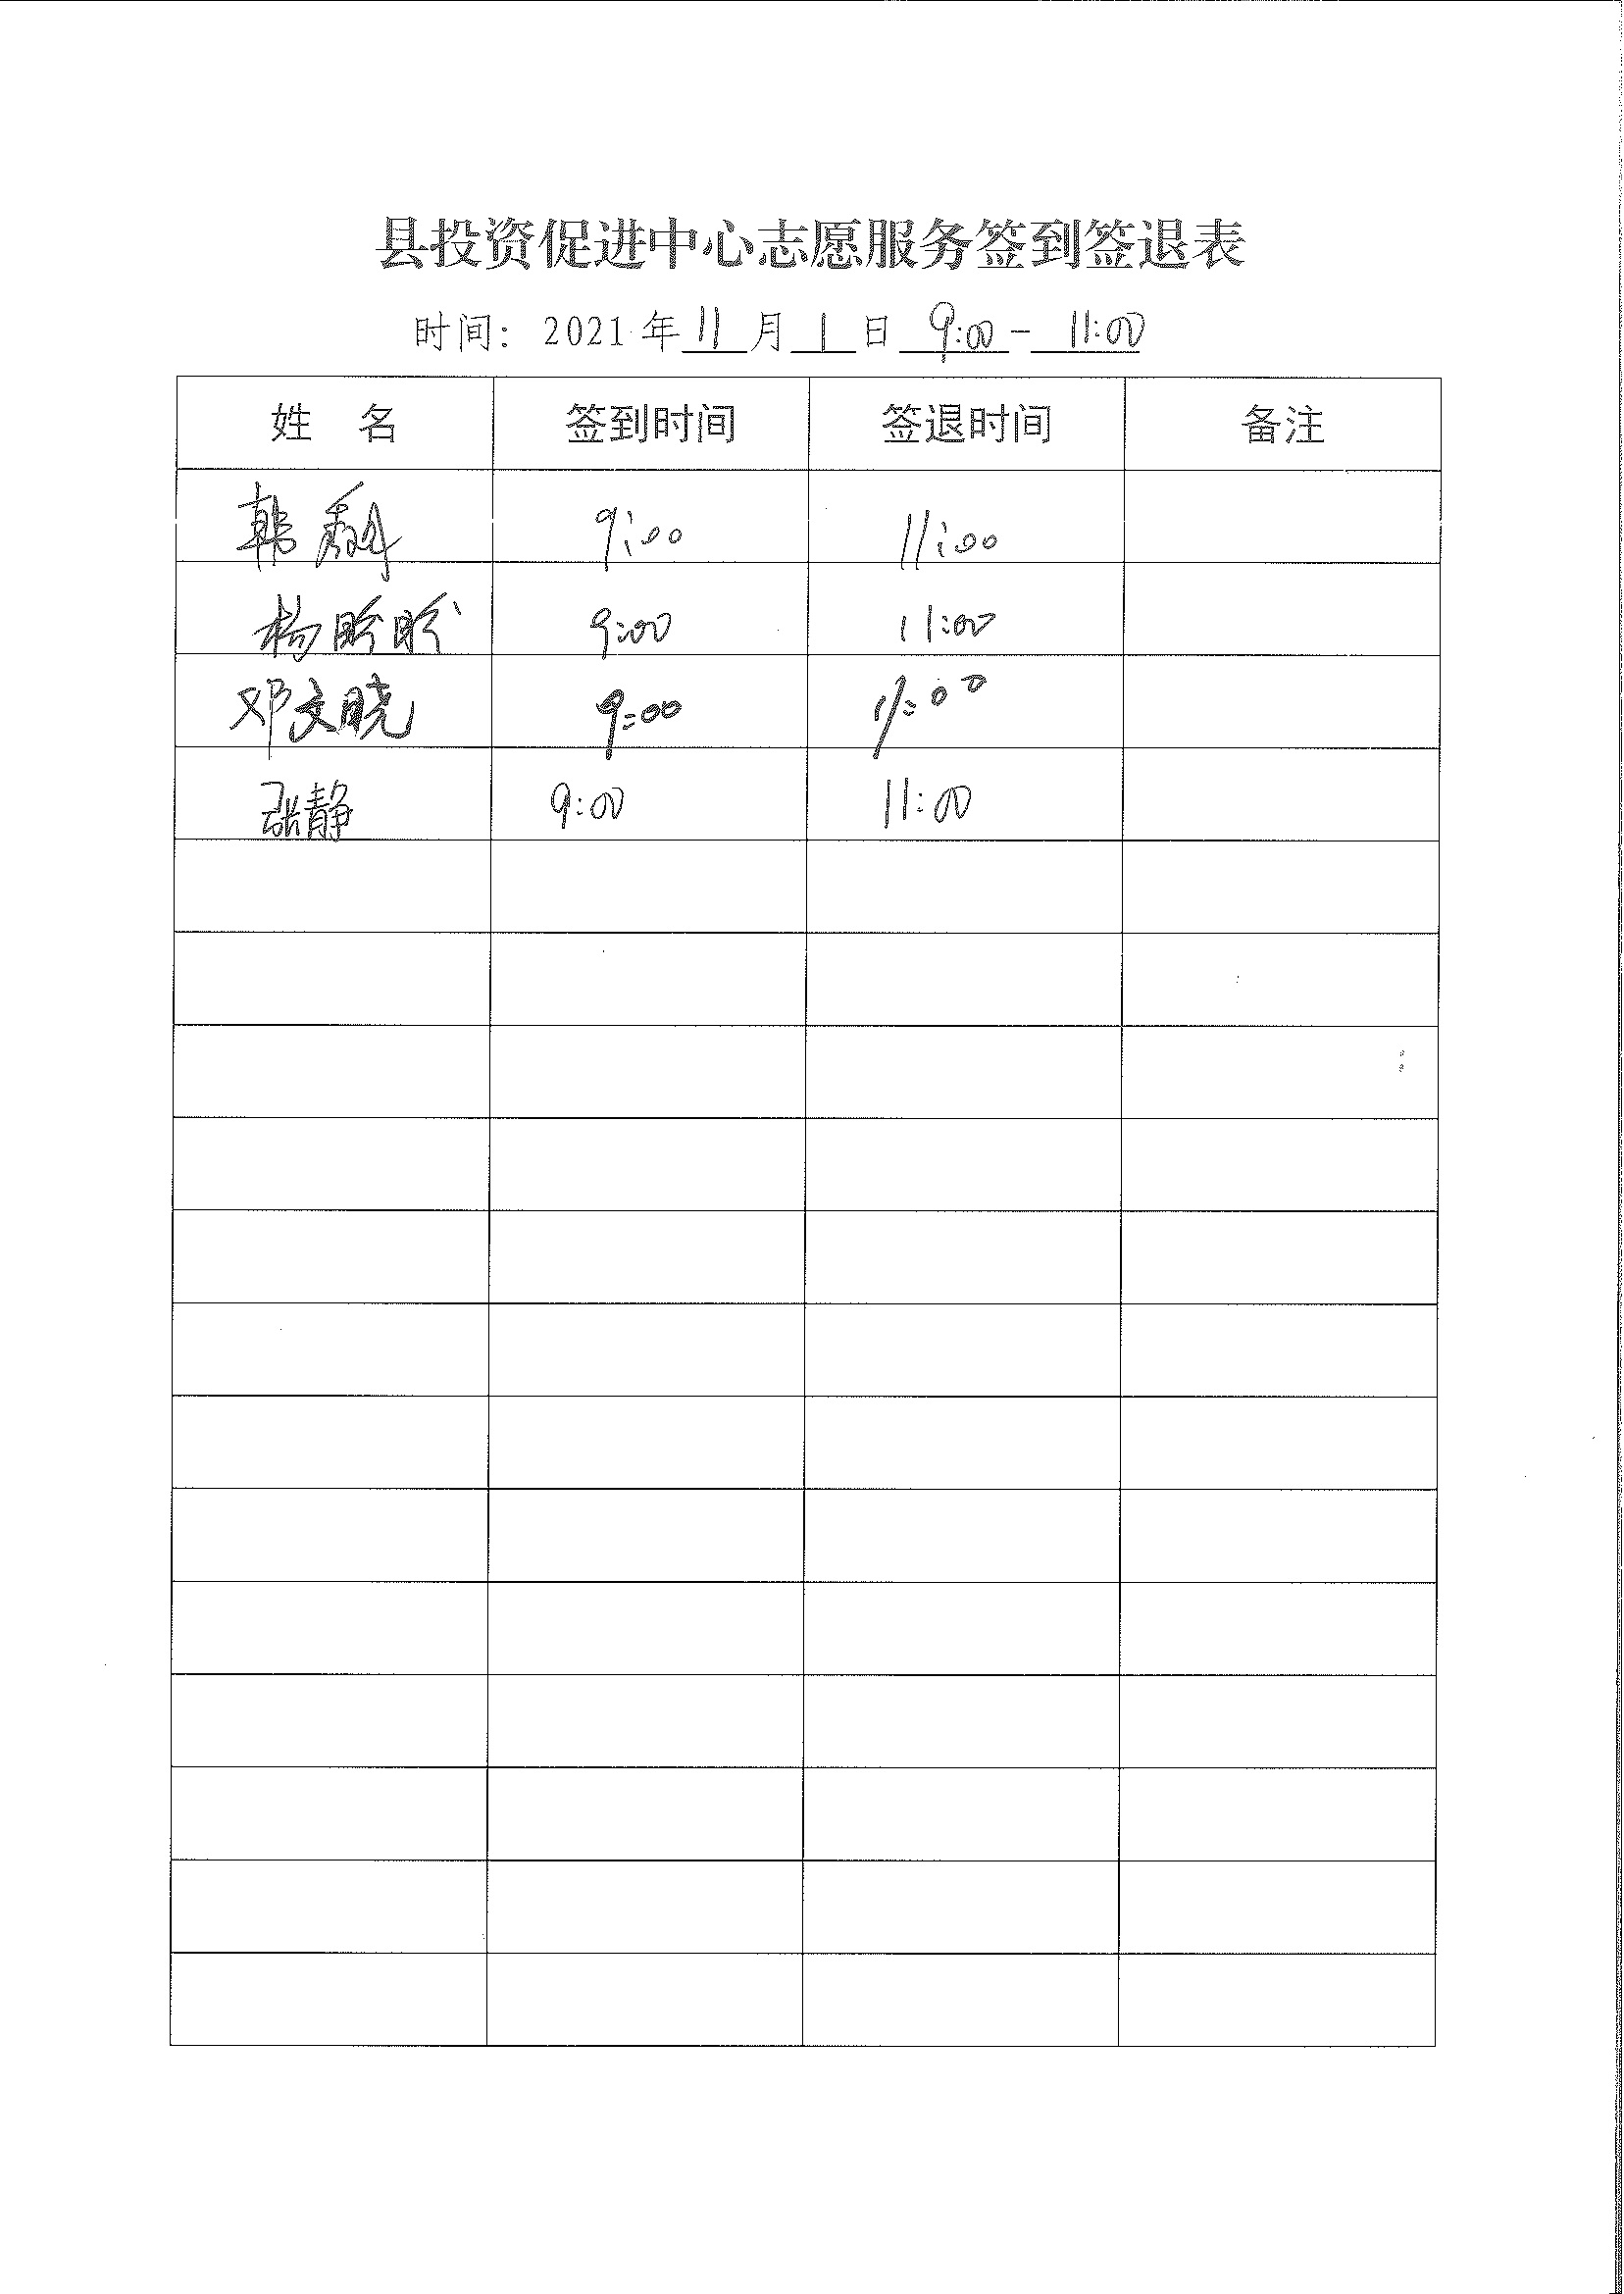 县投资促进中心志愿服务签到签退表
时间：2021年11月1日 9:00-11:00
姓 名 签到时间 签退时间 备注
韩 9:00 11:00
杨盼盼 9:00 11:00
邓文晓 9:00 11:00
张静 9:00 11:00